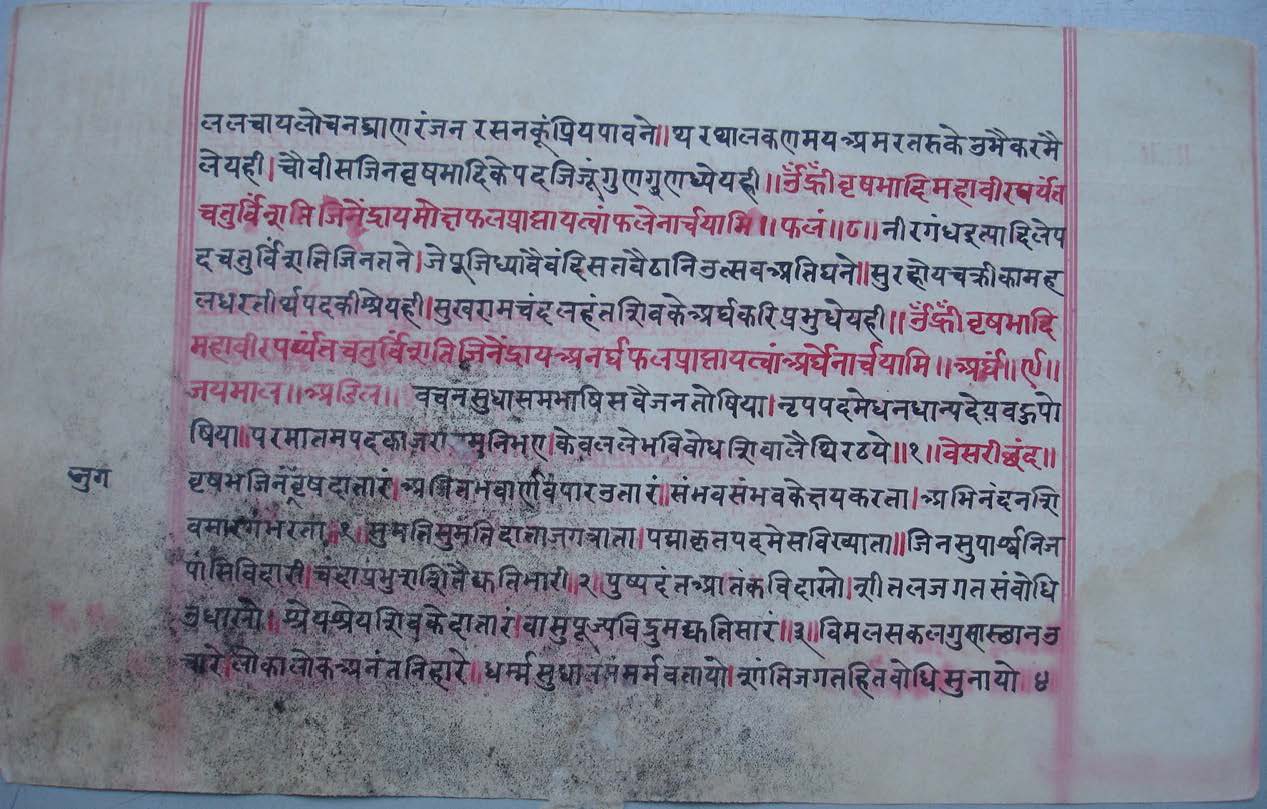 ललचायलोचनघ्राणरंजन रसनकूंप्रियपावने॥ थ रथालकणमयअमरतरुकेउभैकरमै
लेयही।चौवीसजिनवृषभादिकेपदजिजूंगुणगुणध्येयही॥ॐह्रीवृषभादिमहावीरपर्यंत
चतुर्विंशतिजिनेंद्रायमोक्षफलप्राप्तायत्वांफलेनार्चयामि॥फलं॥८॥नीरगंधइत्यादिलेप
दचतुर्विंशतिजिनतने।जेपूजिध्यावैवंदिसतवैठानिउत्सवअतिघने॥सुरहोयचक्रीकामह
लधरतीर्थपदकीश्रेयही।सुखरामचंदलहंतशिवकेअर्घकरिप्रभुधेयही॥ॐह्रीवृषभादि
महावीरपर्य्यंतचतुर्विंशतिजिनेंद्रायअनर्घफलप्राप्तायत्वांअर्घेनार्चयामि॥अर्घं॥९॥
जयमाल॥अडिल॥ वचनसुधासमभाषिसवैजनतोषिया।नृपपदमेधनधान्यदेयवहुपो
षिया॥परमातमपदकाज मुनिभए।केवललेभविवोधशिवालैथिरठये॥१॥वेसरीछंद॥
जुग
वृषभजिनंवृषदातारं।अजितभवार्णविपारउतारं॥संभवसंभवकेक्षयकरता।अभिनंदनशि
वमारगभरता॥१॥सुमतिसुमतिदाताजगत्राता।पद्माकृतपदमेसविख्याता॥जिनसुपार्श्वनिज
पासिविदारी।चंदाप्रभुशशितैद्युतिभारी२ पुष्पदंतआतंकविदास्यो।शीतलजगतसंवोधि
उधास्यो।श्रेयश्रेयशिवकेदातारं।वासुपूज्यविद्रुमद्युतिसारं॥३॥विमलसकलगुसास्छानउ
चारे।लोकालोकअनंतनिहारे।धर्म्मसुधा मर्मवतायो।शांतिजगतहितवोधिसुनायो ४